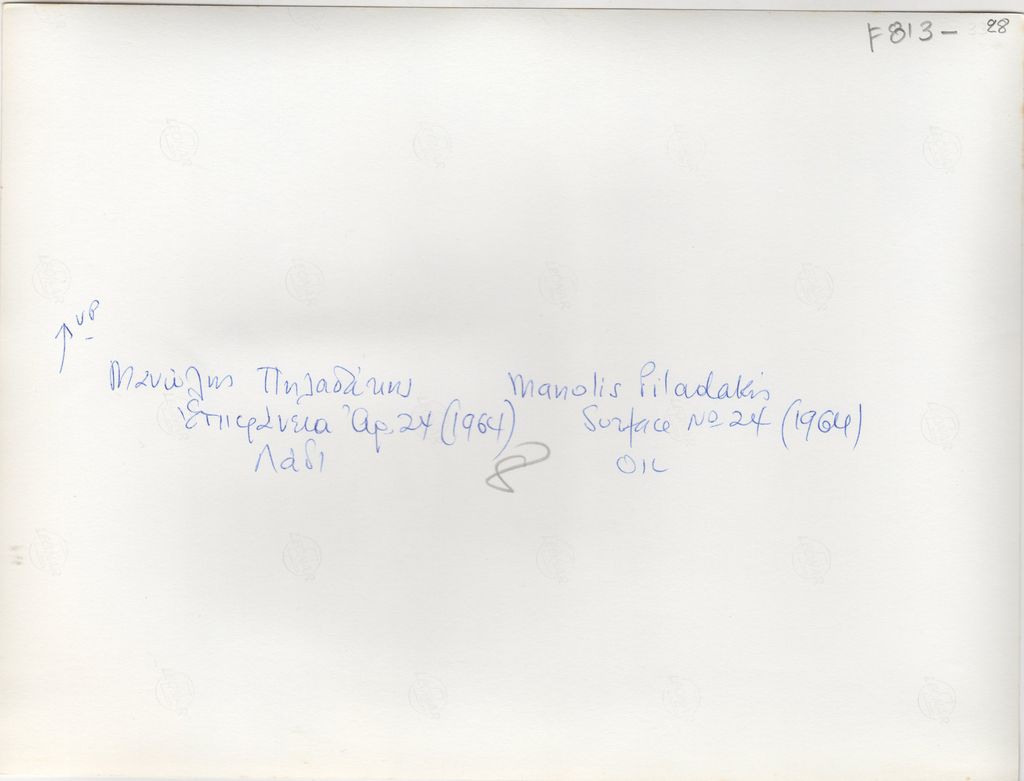 F813- 28
↑ UP
Μανώλης Πηλαδάκης Manolis Piladakis
Ἐπιφάνεια Ἀρ. 24 (1964) Surface No 24 (1964)
Λάδι OIL
8